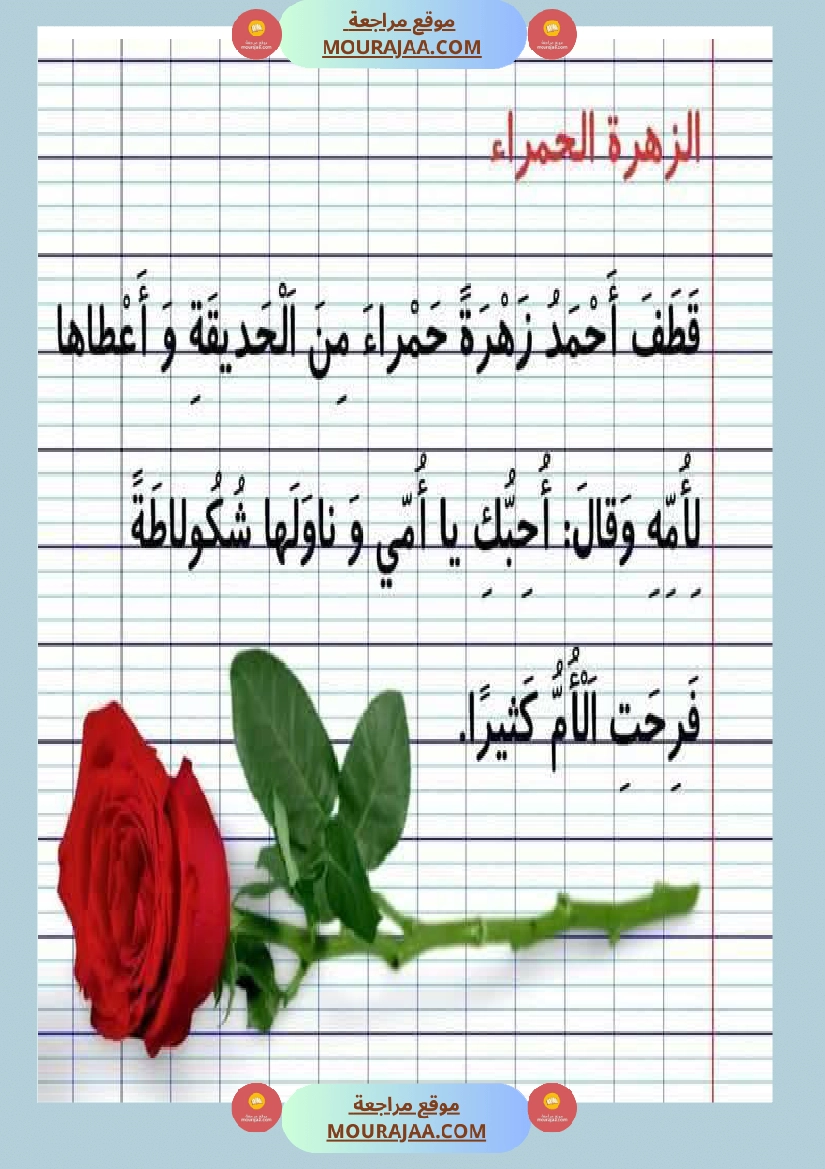 موقع مراجعة
MOURAJAA.COM
الزهرة الحمراء
قَطَفَ أَحْمَدُ زَهْرَةً حَمْراءَ مِنَ اَلْحَديقَةِ وَ أَعْطاها
لِأُمِّهِ وَقالَ: أُحِبُّكِ يا أُمّي وَ ناوَلَها شُكُولاطَةً
فَرِحَتِ اَلْأُمُّ كَثيرًا.
موقع مراجعة
MOURAJAA.COM